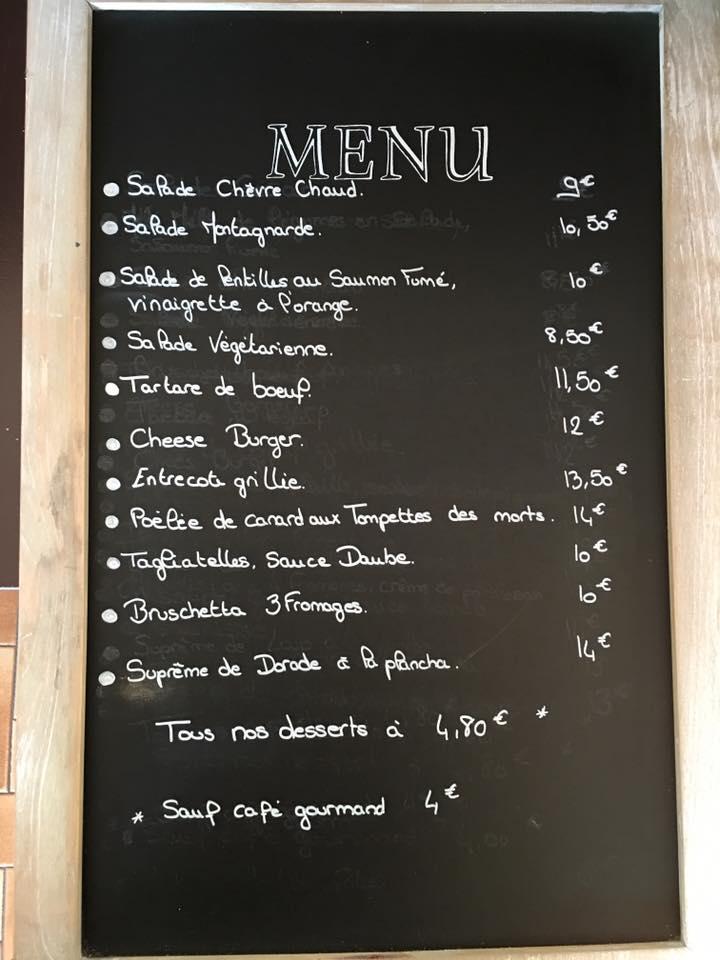 MENU
Salade Chèvre Chaud. 9€
Salade Montagnarde. 10,50€
Salade de lentilles au Saumon Fumé, 10€
vinaigrette à l'orange.
Salade Végétarienne. 8,50€
Tartare de boeuf. 11,50€
Cheese Burger. 12€
Entrecote grillie. 13,50€
Poêlée de canard aux Tompettes des morts. 14€
Tagliatelles, Sauce Daube. 10€
Bruschetta 3 Fromages. 10€
Suprême de Dorade à la plancha. 14€
Tous nos desserts à 4,80€ *
* Sauf café gourmand 4€